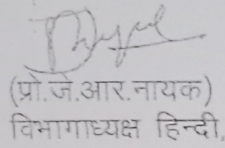 (प्रो.जे.आर.नायक)
विभागाध्यक्ष हिन्दी,